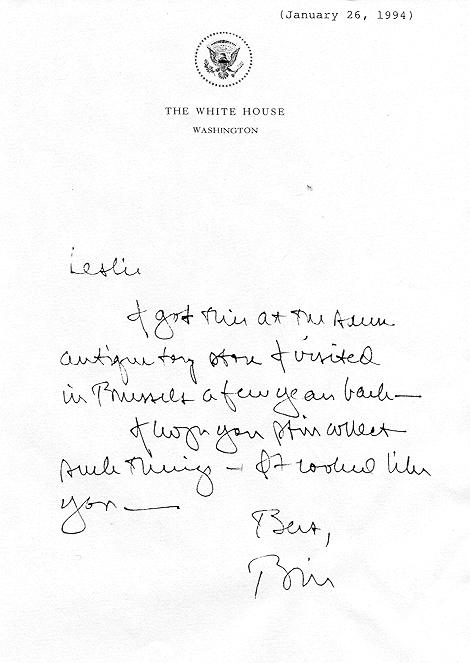 (January 26, 1994)
THE WHITE HOUSE
WASHINGTON
Leslie
I got this at the same
antique toy store I visited
in Brussels a few years back—
I hope you still collect
such things — It looked like
you —
Best,
Bill